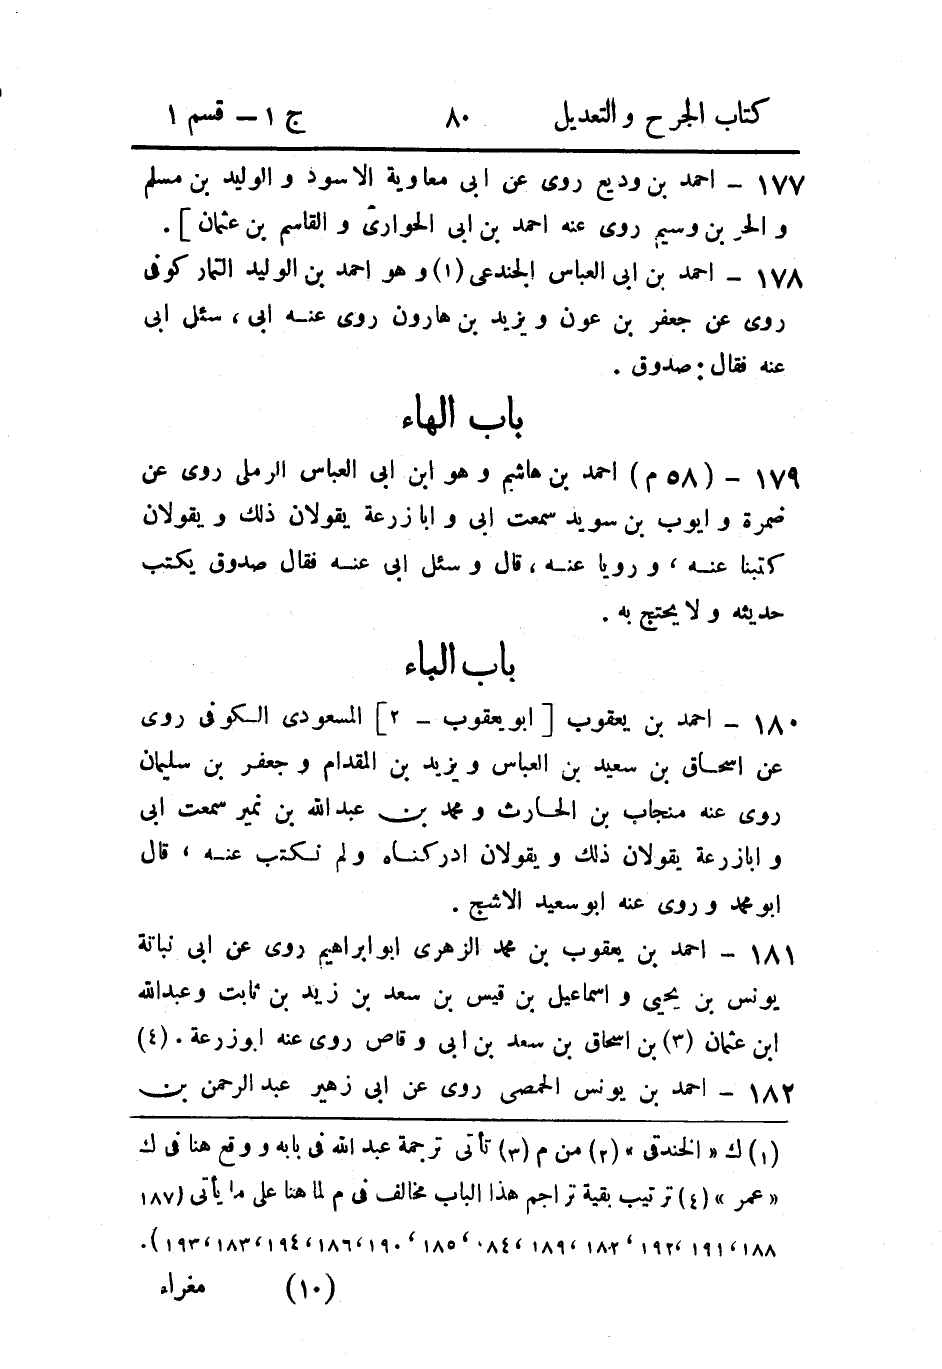 كتاب الجرح والتعديل ٨٠ ج ١ - قسم ١
١٧٧ - احمد بن وديع روى عن ابى معاوية الاسود و الوليد بن مسلم
و الحر بن وسيم روى عنه احمد بن ابى الحوارى و القاسم بن عثمان ] .
١٧٨ - احمد بن ابى العباس الجندعى (١) و هو احمد بن الوليد التمار كوفى
روى عن جعفر بن عون و يزيد بن هارون روى عنه ابى ، سئل ابى
عنه فقال : صدوق .
باب الهاء
١٧٩ - (٥٨ م) احمد بن هاشم و هو ابن ابى العباس الرملى روى عن
ضمرة و ايوب بن سويد سمعت ابى و ابا زرعة يقولان ذلك و يقولان
كتبنا عنه ، و رويا عنه ، قال و سئل ابى عنه فقال صدوق يكتب
حديثه و لا يحتج به .
باب الياء
١٨٠ - احمد بن يعقوب [ ابو يعقوب - ٢ ] المسعودى الكوفى روى
عن اسحاق بن سعيد بن العباس و يزيد بن المقدام و جعفر بن سليمان
روى عنه منجاب بن الحارث و محمد بن عبدالله بن نمير سمعت ابى
و ابا زرعة يقولان ذلك و يقولان ادركناه و لم نكتب عنه ، قال
ابو محمد و روى عنه ابو سعيد الاشج .
١٨١ - احمد بن يعقوب بن محمد الزهرى ابو ابراهيم روى عن ابى نباتة
يونس بن يحيى و اسماعيل بن قيس بن سعد بن زيد بن ثابت و عبدالله
ابن عثمان (٣) بن اسحاق بن سعد بن ابى وقاص روى عنه ابوزرعة . (٤)
١٨٢ - احمد بن يونس الحمصى روى عن ابى زهير عبد الرحمن بن
(١) ك « الخندقى » (٢) من م (٣) تأتى ترجمة عبد الله فى بابه و وقع هنا فى ك
« عمر » (٤) ترتيب بقية تراجم هذا الباب مخالف فى م لما هنا على ما يأتى (١٨٧
١٨٨ ، ١٩١ ، ١٩٢ ، ١٨٢ ، ١٨٩ ، ٠٨٤ ، ١٨٥ ، ١٩٠ ، ١٨٦ ، ١٩٤ ، ١٨٣ ، ١٩٣) .
(١٠) مغراء